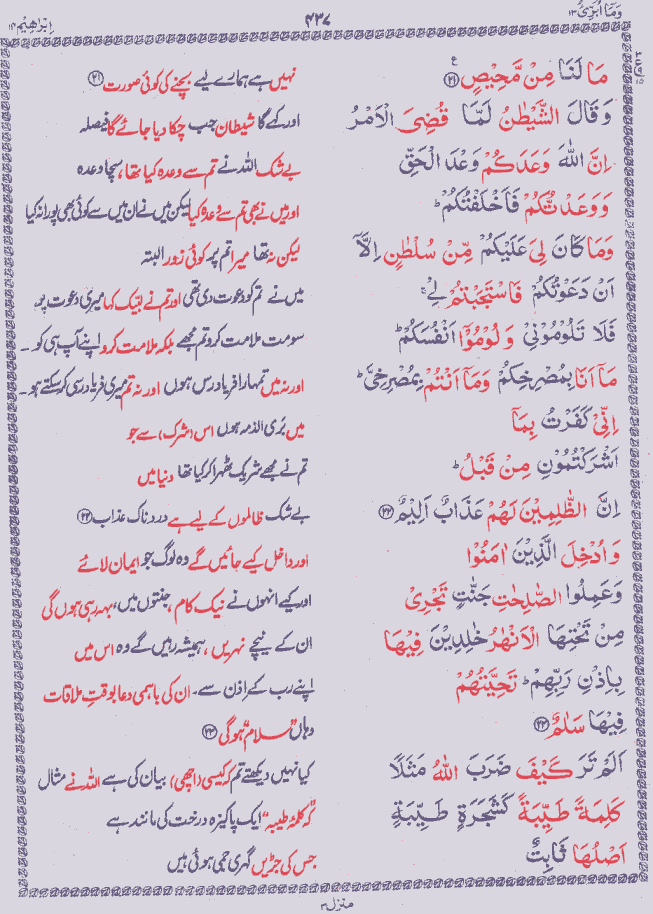 وَمَآ اُبَرِّئُ ۱۳
۴۳۷
اِبْرٰهِیْم ۱۴
مَا لَنَا مِنْ مَّحِیْصٍ ﴿۲۱﴾ نہیں ہے ہمارے لیے بچنے کی کوئی صورت ﴿۲۱﴾
وَقَالَ الشَّیْطٰنُ لَمَّا قُضِیَ الْاَمْرُ اور کہے گا شیطان جب چکا دیا جائے گا فیصلہ
اِنَّ اللّٰهَ وَعَدَكُمْ وَعْدَ الْحَقِّ بے شک اللہ نے تم سے وعدہ کیا تھا، سچا وعدہ
وَوَعَدْتُّكُمْ فَاَخْلَفْتُكُمْ ؕ اور میں نے بھی تم سے وعدہ کیا لیکن میں نے ان میں سے کوئی بھی پورا نہ کیا
وَمَا كَانَ لِیَ عَلَیْكُمْ مِّنْ سُلْطٰنٍ اِلَّاۤ لیکن نہ تھا میرا تم پر کوئی زور البتہ
اَنْ دَعَوْتُكُمْ فَاسْتَجَبْتُمْ لِیْ ۚ میں نے تم کو دعوت دی تھی اور تم نے لبیک کہا میری دعوت پر
فَلَا تَلُوْمُوْنِیْ وَلُوْمُوْۤا اَنْفُسَكُمْ ؕ سومت ملامت کرو تم مجھے بلکہ ملامت کرو اپنے آپ ہی کو ۔
مَاۤ اَنَا بِمُصْرِخِكُمْ وَمَاۤ اَنْتُمْ بِمُصْرِخِیَّ ؕ اور نہ میں تمہارا فریاد رس ہوں اور نہ تم میری فریاد رسی کر سکتے ہو ۔
اِنِّیْ كَفَرْتُ بِمَاۤ میں بری الذمہ ہوں اس (شرک) سے جو
اَشْرَكْتُمُوْنِ مِنْ قَبْلُ ؕ تم نے مجھے شریک ٹھہرا کر کیا تھا دنیا میں
اِنَّ الظّٰلِمِیْنَ لَهُمْ عَذَابٌ اَلِیْمٌ ﴿۲۲﴾ بے شک ظالموں کے لیے ہے دردناک عذاب ﴿۲۲﴾
وَاُدْخِلَ الَّذِیْنَ اٰمَنُوْا اور داخل کیے جائیں گے وہ لوگ جو ایمان لائے
وَعَمِلُوا الصّٰلِحٰتِ جَنّٰتٍ تَجْرِیْ اور کیے انہوں نے نیک کام، جنتوں میں، بہہ رہی ہوں گی
مِنْ تَحْتِهَا الْاَنْهٰرُ خٰلِدِیْنَ فِیْهَا ان کے نیچے نہریں، ہمیشہ رہیں گے وہ اس میں
بِاِذْنِ رَبِّهِمْ ؕ تَحِیَّتُهُمْ اپنے رب کے اذن سے۔ ان کی باہمی دعا بوقتِ ملاقات
فِیْهَا سَلٰمٌ ﴿۲۳﴾ وہاں "سلام" ہوگی ﴿۲۳﴾
اَلَمْ تَرَ كَیْفَ ضَرَبَ اللّٰهُ مَثَلًا کیا نہیں دیکھتے تم کہ کیسی (اچھی) بیان کی ہے اللہ نے مثال
كَلِمَةً طَیِّبَةً كَشَجَرَةٍ طَیِّبَةٍ کہ "کلمۂ طیبہ" ایک پاکیزہ درخت کی مانند ہے
اَصْلُهَا ثَابِتٌ جس کی جڑیں گہری جمی ہوئی ہیں
منزل ۳